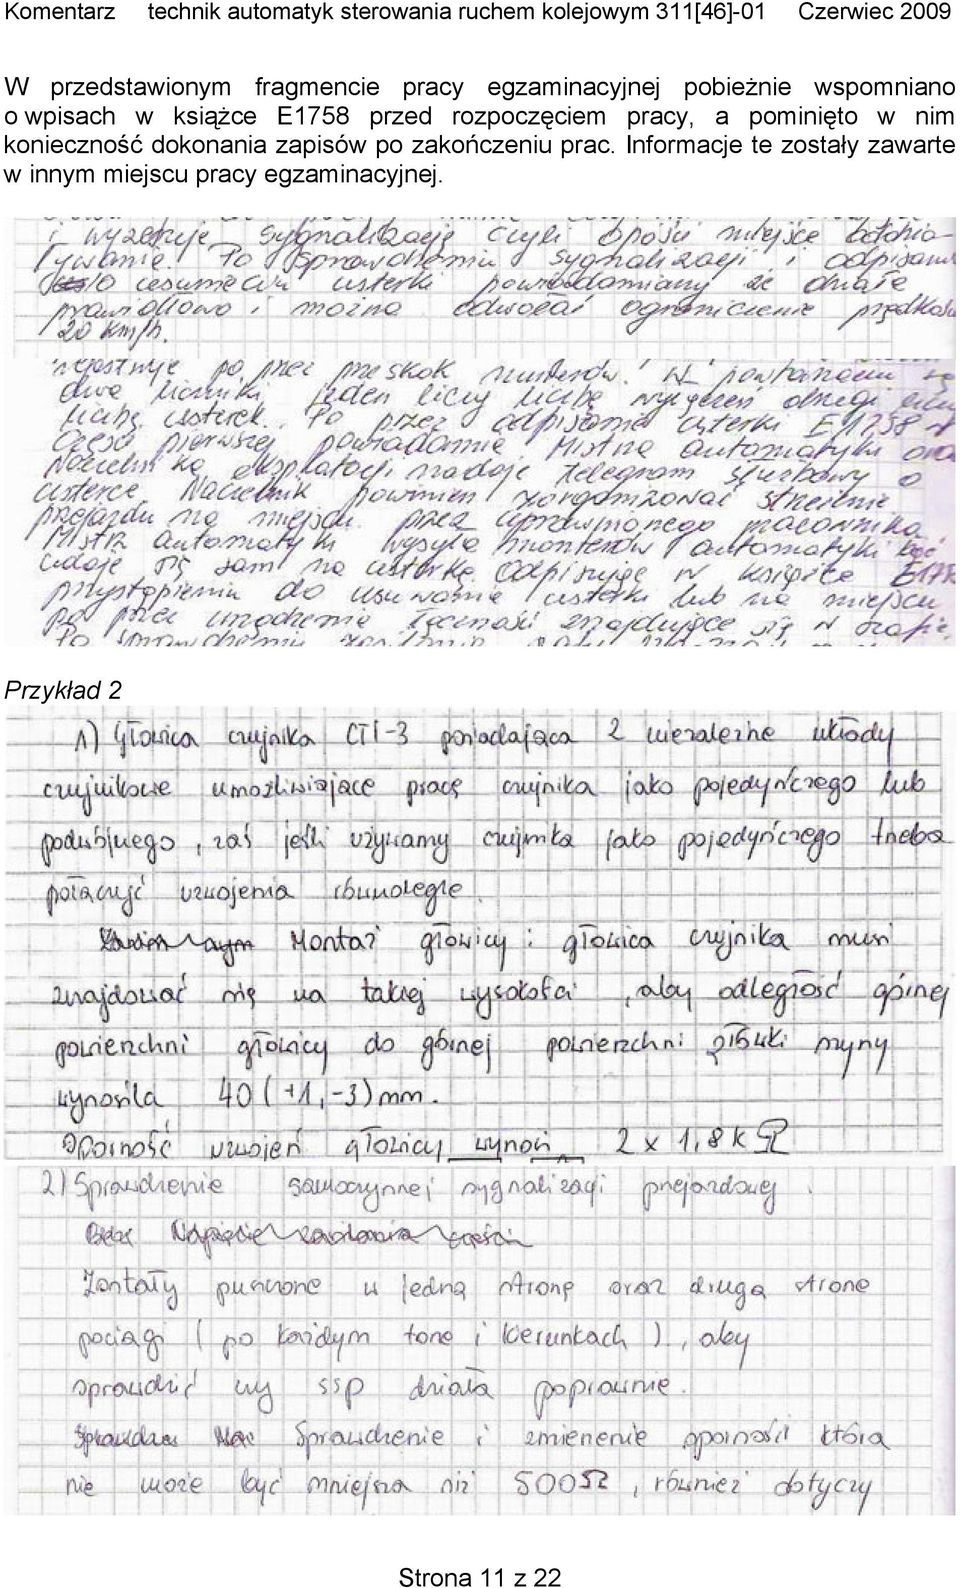 Komentarz technik automatyk sterowania ruchem kolejowym 311[46]-01 Czerwiec 2009
W przedstawionym fragmencie pracy egzaminacyjnej pobieżnie wspomniano
o wpisach w książce E1758 przed rozpoczęciem pracy, a pominięto w nim
konieczność dokonania zapisów po zakończeniu prac. Informacje te zostały zawarte
w innym miejscu pracy egzaminacyjnej.
i sygnalizację czyli opisu miejsce
Po sprawdzeniu sygnalizacji i odpisaniu
usterki powiadamiamy że działa
prawidłowo i można odwołać ograniczenie prędkości
20 km/h.
rejestruje po przez przeskok numerów. W powtarzaczu są
dwa liczniki jeden liczy liczbę wyłączeń drugi
liczbę usterek. Po przez odpisanie usterki E1758 w
części pierwszej powiadamia Mistrza automatyki oraz
Naczelnika eksploatacji nadaje telegram służbowy o
usterce Naczelnik powinien zorganizować strzeżenie
przejazdu na miejscu przez uprawnionego pracownika
Mistrz automatyki wysyła monterów automatyki bądź
udaje się sam na usterkę. Odpisując w książce
przystąpieniu do usuwania usterki lub na miejscu
po przez urządzenie łączności znajdujące się w szafie.
Po sprawdzeniu
Przykład 2
1) Głowica czujnika CTI-3 posiadająca 2 niezależne układy
czujnikowe umożliwiające pracę czujnika jako pojedyńczego lub
podwójnego, zaś jeśli używamy czujnika jako pojedyńczego trzeba
połączyć uzwojenia równolegle.
Montaż głowicy : głowica czujnika musi
znajdować się na takiej wysokości, aby odległość górnej
powierzchni głowicy do górnej powierzchni główki szyny
wynosiła 40 (+1,-3) mm.
Oporność uzwojeń głowicy wynosi 2 x 1,8 kΩ
2) Sprawdzenie samoczynnej sygnalizacji przejazdowej.
Zostały puszczone w jedną stronę oraz drugą stronę
pociągi (po każdym torze i kierunkach), aby
sprawdzić czy SSP działa poprawnie.
Sprawdzenie i zmierzenie oporności która
nie może być mniejsza niż 500Ω, również dotyczy
Strona 11 z 22